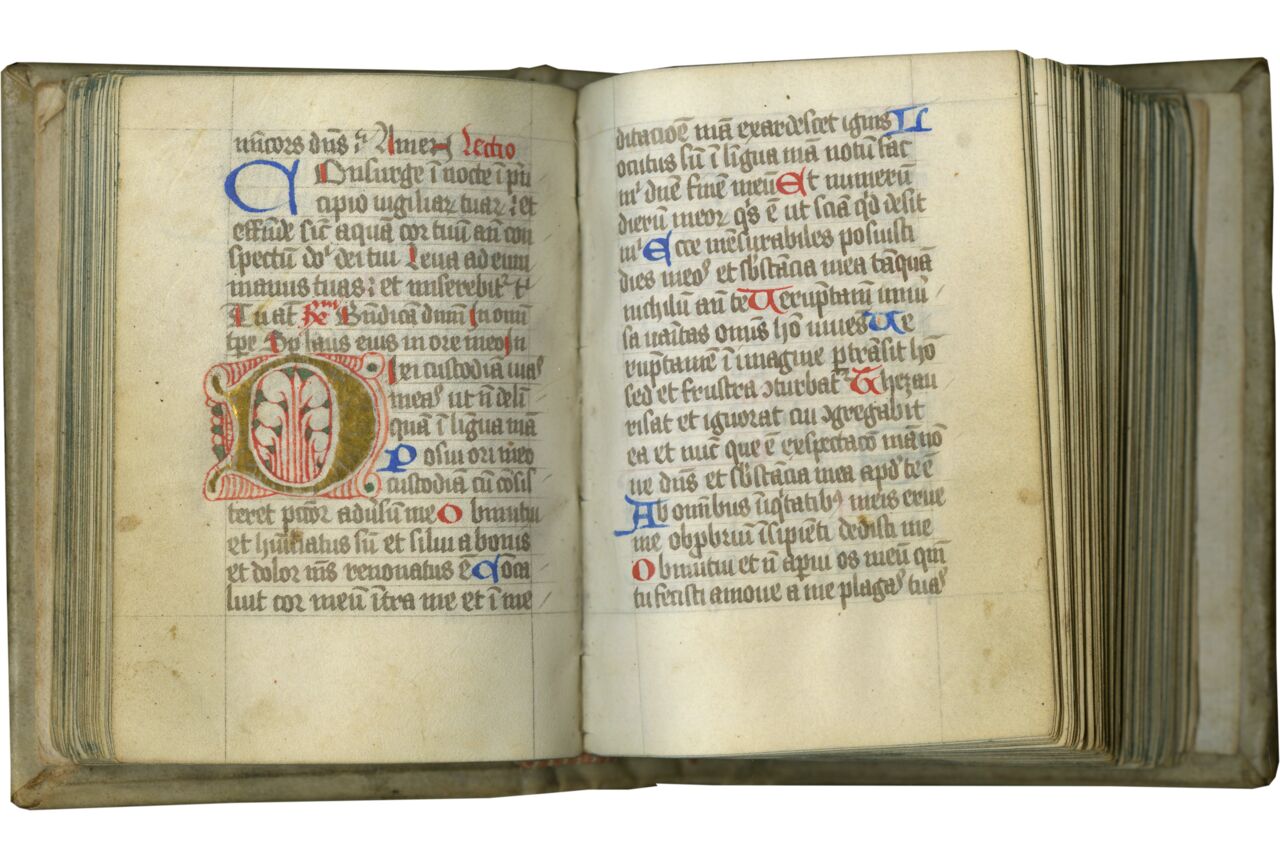 mĩcors dñs ⁊ Amen Lectio
COnsurge ĩ nocte ĩ pñ
cipio vigiliaꝝ tuaꝝ : et
effũde sic̃ aquã cor tuũ añ con
spectũ dñi dei tui Leva ad eum
manus tuas : et miserebit᷑ t᷑
Benedicã dñm In omni
tpe laus eius in ore meo In
Dixi custodiã vias
meas ut ñ deli
quã ĩ ligua mã
Posui ori meo
custodiã cũ cõsis
teret pctõr adũsũ me Obmutui
et hũiliatus sũ et silui a bonis
et dolor ms̃ renovatus ẽ Conca
luit cor meũ ĩtra me et ĩ me
ditacioẽ mã exardescet ignis L
ocutus sũ ĩ ligua mã notũ fac
m' dñe finẽ meũ Et numerũ
dierũ meoꝝ q's ẽ ut sciã qd desit
m' Ecce mẽsurabiles posuisti
dies meos et sb̃stãcia mea tãquã
nichilũ añ te Veruptam̃ uniṽ
sa vanitas omis hõ vives Ve
ruptam̃ ĩ imagine ptrãsit hõ
sed et frustra ↄturbat᷑ Thezau
risat et ignorat cui ↄgregabit
ea et nũc que ẽ exspectacõ mã nõ
ne dñs et sb̃stãcia mea apd te ẽ
Ab omibus ĩiqtatib' meis erue
me obpbriũ ĩsipiẽti dedisti me
Obmutui et ñ apui os meũ qm̃
tu fecisti amove a me plagas tuas